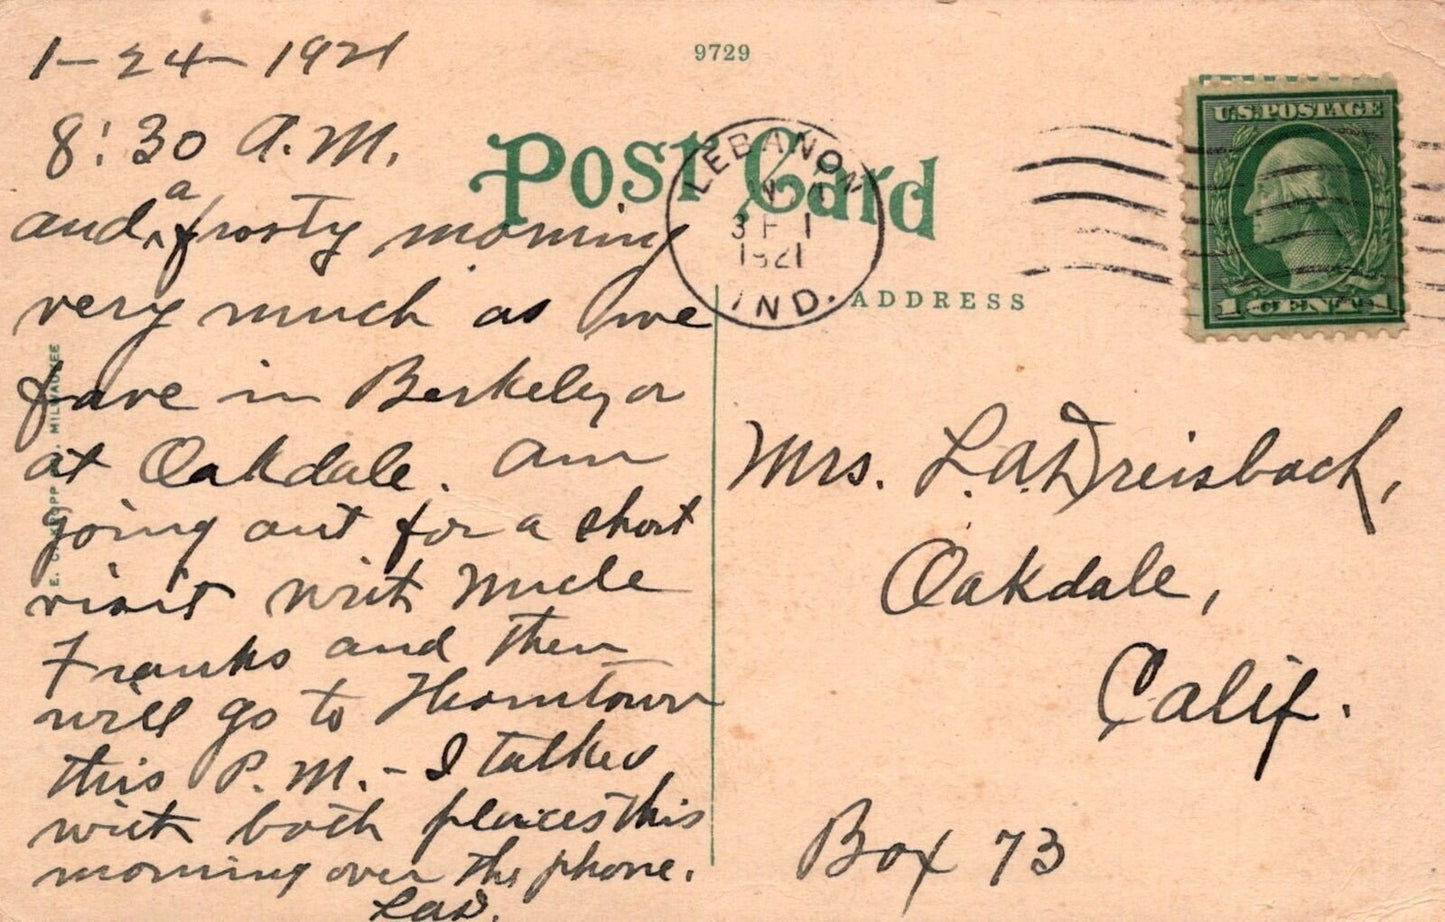 1-24-1921
8:30 A.M.
and a frosty morning
very much as we
have in Berkeley or
at Oakdale. Am
going out for a short
visit with Uncle
Franks and then
will go to Thorntown
this P.M. - I talked
with both places this
morning over the phone.
LAD.
9729
Post Card
LEBANON
1921
IND.
ADDRESS
U.S. POSTAGE
1 CENT 1
Mrs. L.A. Dreisbach,
Oakdale,
Calif.
Box 73
MILWAUKEE